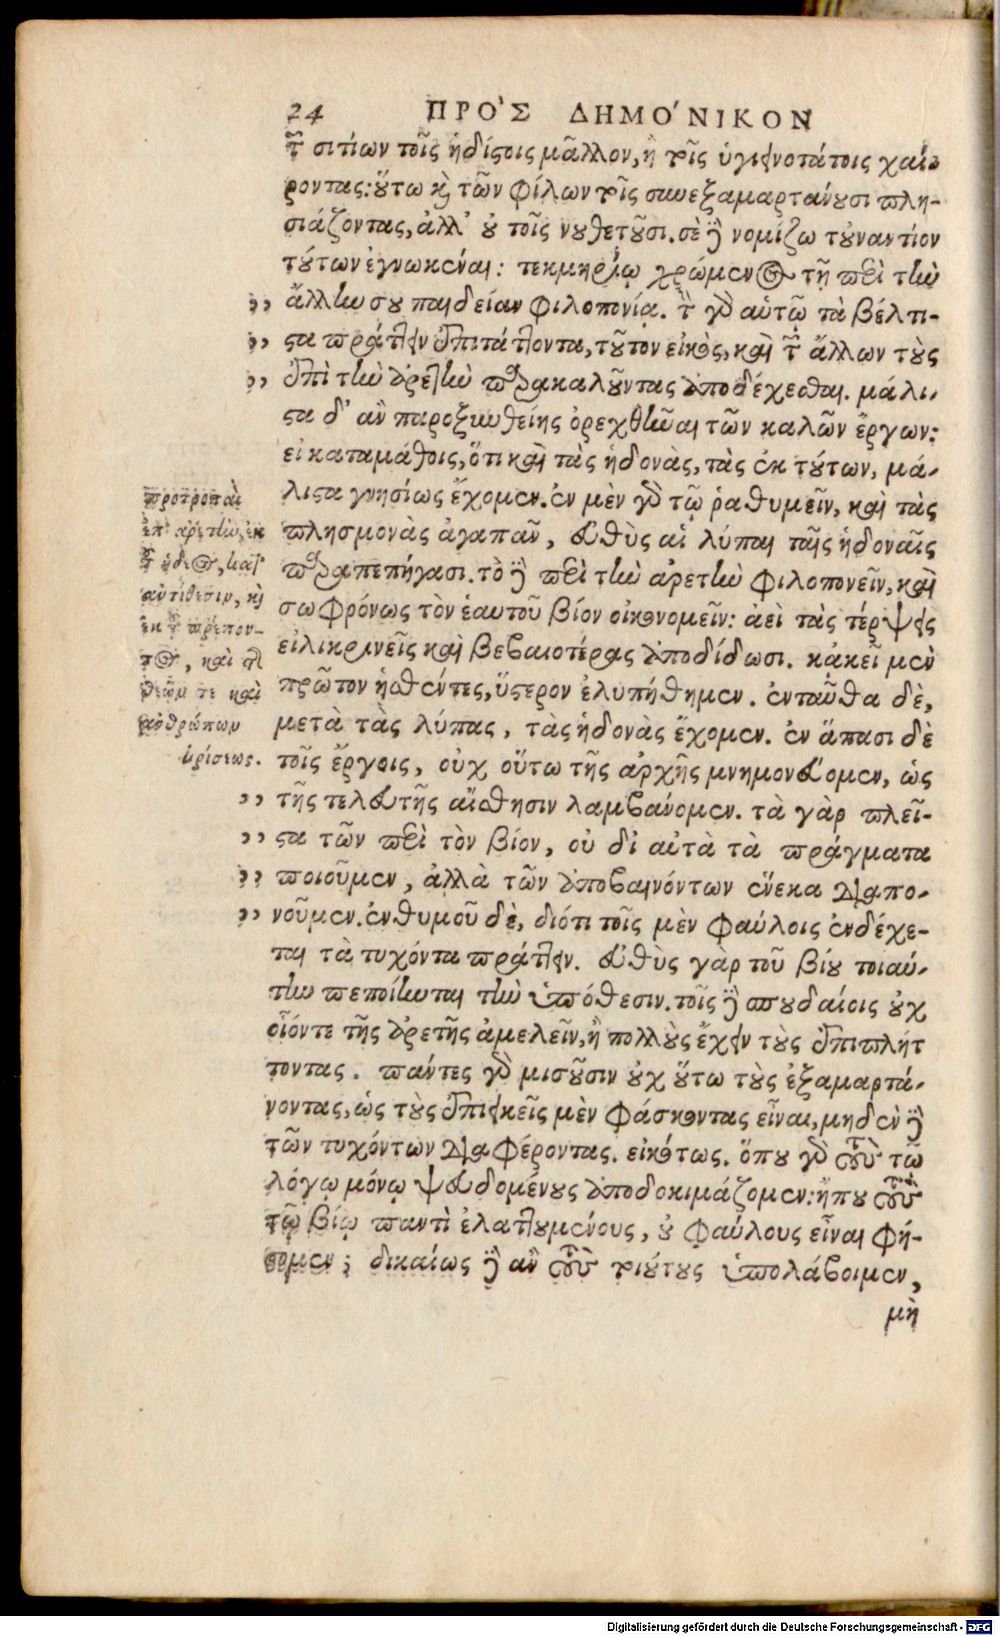 24 ΠΡΟ'Σ ΔΗΜΟ'ΝΙΚΟΝ
τῶν σιτίων τοῖς ἡδίστοις μᾶλλον, ἢ τοῖς ὑγιεινοτάτοις χαί-
ροντας: οὕτω καὶ τῶν φίλων τοῖς συνεξαμαρτάνουσι πλη-
σιάζοντας, ἀλλ' οὐ τοῖς νουθετοῦσι. σὲ δὲ νομίζω τοὐναντίον
τούτων ἐγνωκέναι: τεκμηρίῳ χρώμενος τῇ περὶ τὴν
,, ἄλλην σου παιδείαν φιλοπονίᾳ. τὸν γὰρ αὑτῷ τὰ βέλτι-
,, στα πράττειν ἐπιτάττοντα, τοῦτον εἰκὸς, καὶ τῶν ἄλλων τοὺς
,, ἐπὶ τὴν ἀρετὴν παρακαλοῦντας ἀποδέχεσθαι. μάλι-
στα δ' ἂν παροξυνθείης ὀρεχθῆναι τῶν καλῶν ἔργων:
εἰ καταμάθοις, ὅτι καὶ τὰς ἡδονὰς, τὰς ἐκ τούτων, μά-
λιστα γνησίως ἔχομεν. ἐν μὲν γὰρ τῷ ῥαθυμεῖν, καὶ τὰς
πλησμονὰς ἀγαπᾶν, εὐθὺς αἱ λύπαι ταῖς ἡδοναῖς
παραπεπήγασι. τὸ δὲ περὶ τὴν ἀρετὴν φιλοπονεῖν, καὶ
σωφρόνως τὸν ἑαυτοῦ βίον οἰκονομεῖν: ἀεὶ τὰς τέρψεις
εἰλικρινεῖς καὶ βεβαιοτέρας ἀποδίδωσι. κἀκεῖ μὲν
πρῶτον ἡσθέντες, ὕστερον ἐλυπήθημεν. ἐνταῦθα δὲ,
μετὰ τὰς λύπας, τὰς ἡδονὰς ἔχομεν. ἐν ἅπασι δὲ
τοῖς ἔργοις, οὐχ οὕτω τῆς ἀρχῆς μνημονεύομεν, ὡς
,, τῆς τελευτῆς αἴσθησιν λαμβάνομεν. τὰ γὰρ πλεῖ-
,, στα τῶν περὶ τὸν βίον, οὐ δι' αὐτὰ τὰ πράγματα
,, ποιοῦμεν, ἀλλὰ τῶν ἀποβαινόντων ἕνεκα διαπο-
,, νοῦμεν. ἐνθυμοῦ δὲ, διότι τοῖς μὲν φαύλοις ἐνδέχε-
ται τὰ τυχόντα πράττειν. εὐθὺς γὰρ τοῦ βίου τοιαύ-
την πεποίηνται τὴν ὑπόθεσιν. τοῖς δὲ σπουδαίοις οὐχ
οἷόντε τῆς ἀρετῆς ἀμελεῖν, ἢ πολλοὺς ἔχειν τοὺς ἐπιπλήτ
τοντας. πάντες γὰρ μισοῦσιν οὐχ οὕτω τοὺς ἐξαμαρτά-
νοντας, ὡς τοὺς ἐπιεικεῖς μὲν φάσκοντας εἶναι, μηδὲν δὲ
τῶν τυχόντων διαφέροντας. εἰκότως. ὅπου γὰρ τοὺς τῷ
λόγῳ μόνῳ ψευδομένους ἀποδοκιμάζομεν: ἤπου τοὺς
τῷ βίῳ παντὶ ἐλαττουμένους, οὐ φαύλους εἶναι φή-
σομεν; δικαίως δὲ ἂν τοὺς τοιούτους ὑπολάβοιμεν,
μὴ
προτροπαὶ
ἐπ' ἀρετὴν, ἐκ
τοῦ ἡδέος, κατ'
ἀντίθεσιν, καὶ
ἐκ τοῦ πρέπον-
τος, καὶ
θεῶν τε καὶ
ἀνθρώπων
κρίσεως.
Digitalisierung gefördert durch die Deutsche Forschungsgemeinschaft - DFG